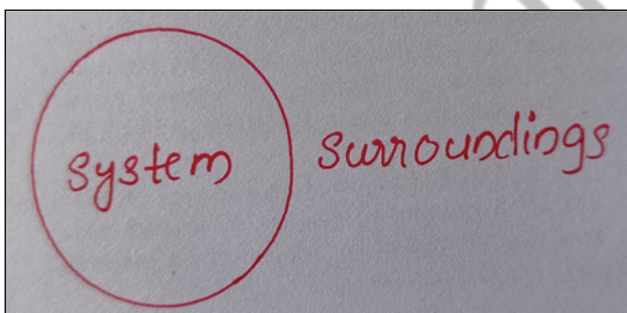 system
surroundings